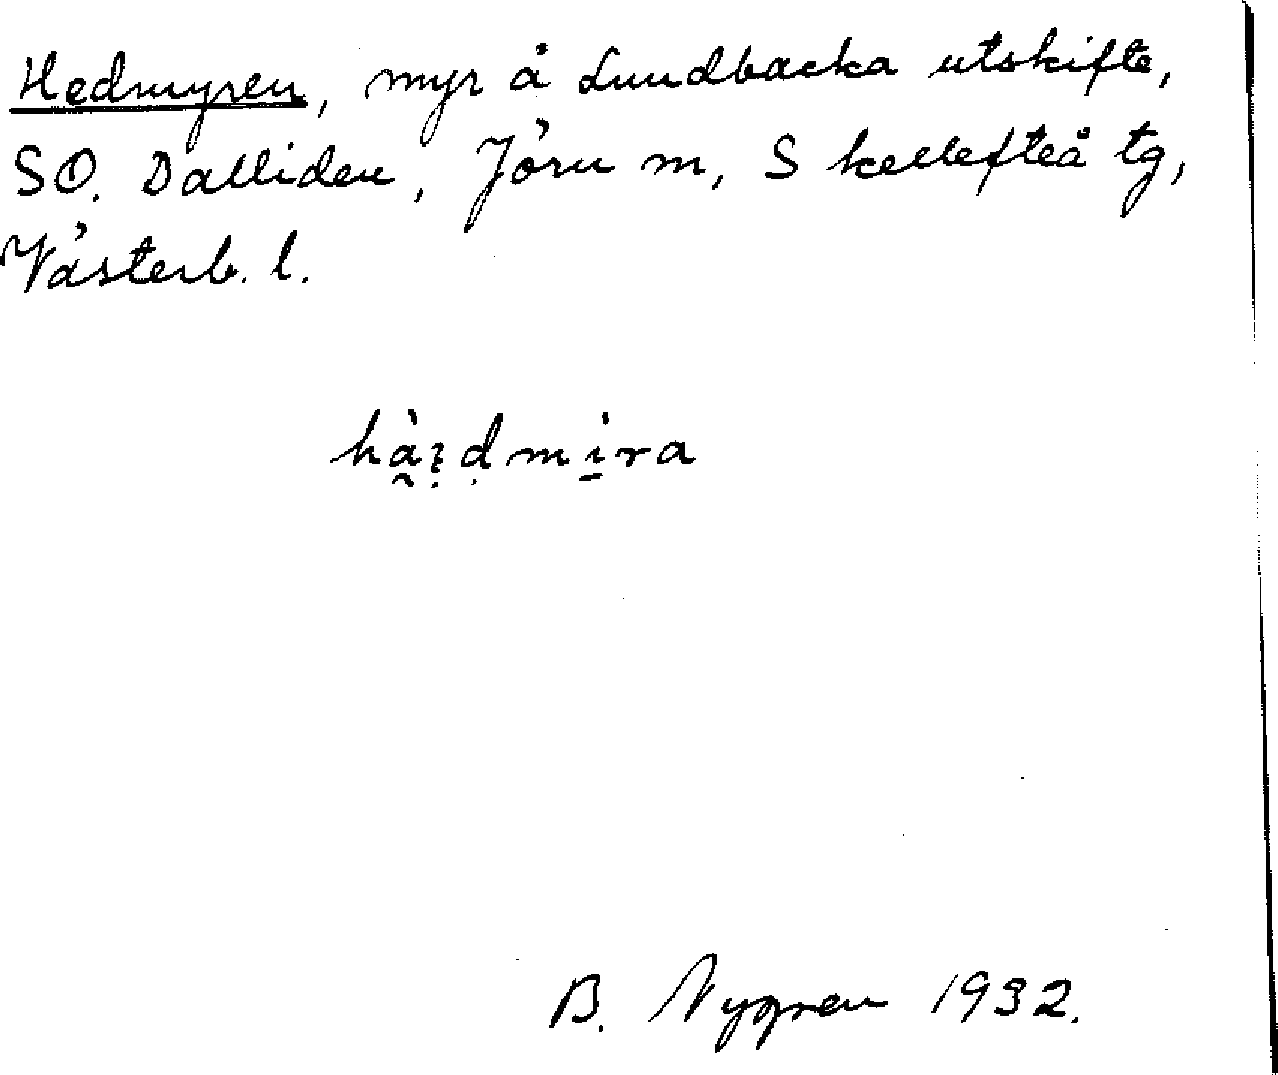 Hedmyren, myr å Lundbacka utskifte,
SO. Dalliden, Jörn m, Skellefteå tg,
Västerb. l.
B. Nygren 1932.